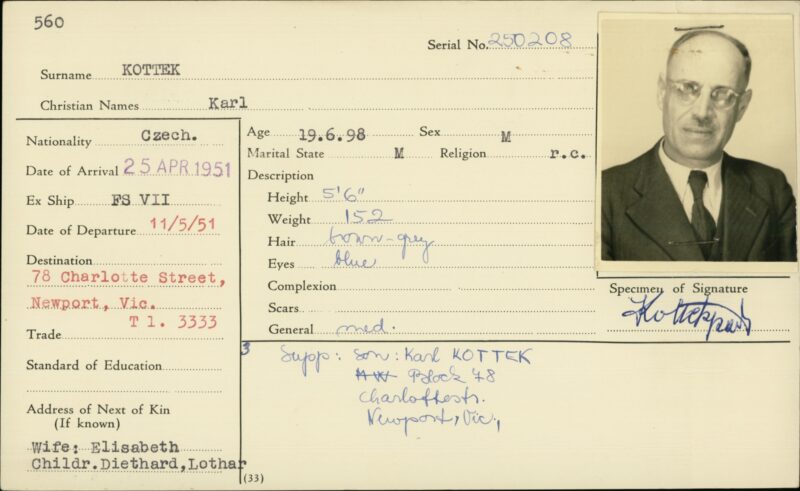 560
Serial No. 250208
Surname KOTTEK
Christian Names Karl
Nationality Czech.
Date of Arrival 25 APR 1951
Ex Ship FS VII
Date of Departure 11/5/51
Destination
78 Charlotte Street,
Newport, Vic.
T 1. 3333
Trade
Standard of Education
Address of Next of Kin
(If known)
Wife: Elisabeth
Childr.Diethard,Lothar
Age 19.6.98 Sex M
Marital State M Religion r.c.
Description
Height 5'6"
Weight 152
Hair brown-grey
Eyes blue
Complexion
Scars
General med.
Specimen of Signature
3
Supp: son: Karl KOTTEK
Block 48
Charlottestr.
Newport, Vic.,
(33)